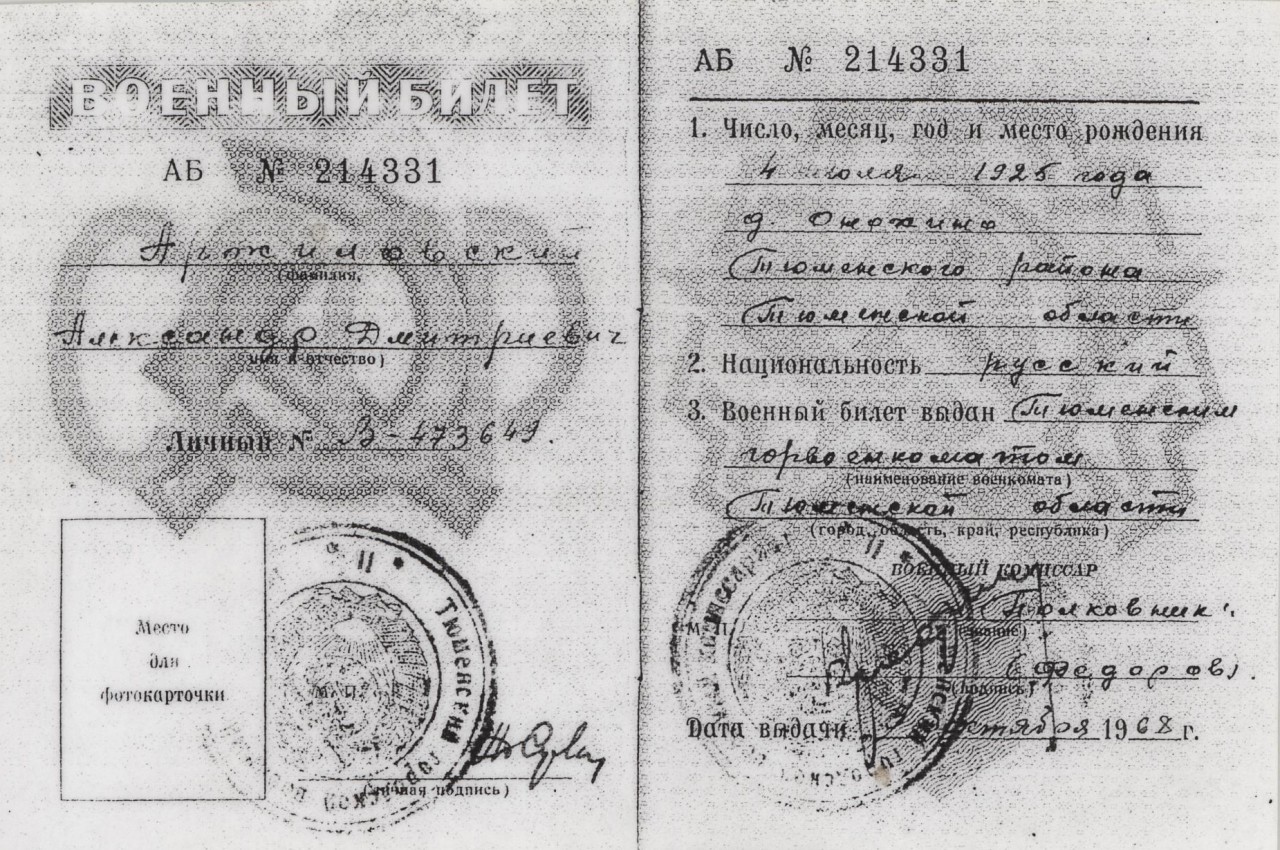 ВОЕННЫЙ БИЛЕТ
АБ № 214331
Аржиловский
(фамилия,
Александр Дмитриевич
имя и отчество)
Личный № В-473649.
Место
для
фотокарточки
М. П.
II * Тюменский городской
(личная подпись)
АБ № 214331
1. Число, месяц, год и место рождения
4 июля 1925 года
д. Онохино
Тюменского района
Тюменской области
2. Национальность русский
3. Военный билет выдан Тюменским
горвоенкоматом
(наименование военкомата)
Тюменской области
(город, область, край, республика)
ВОЕННЫЙ КОМИССАР
М. П.
Полковник
(звание)
(Федоров).
(подпись)
Дата выдачи октября 1968 г.